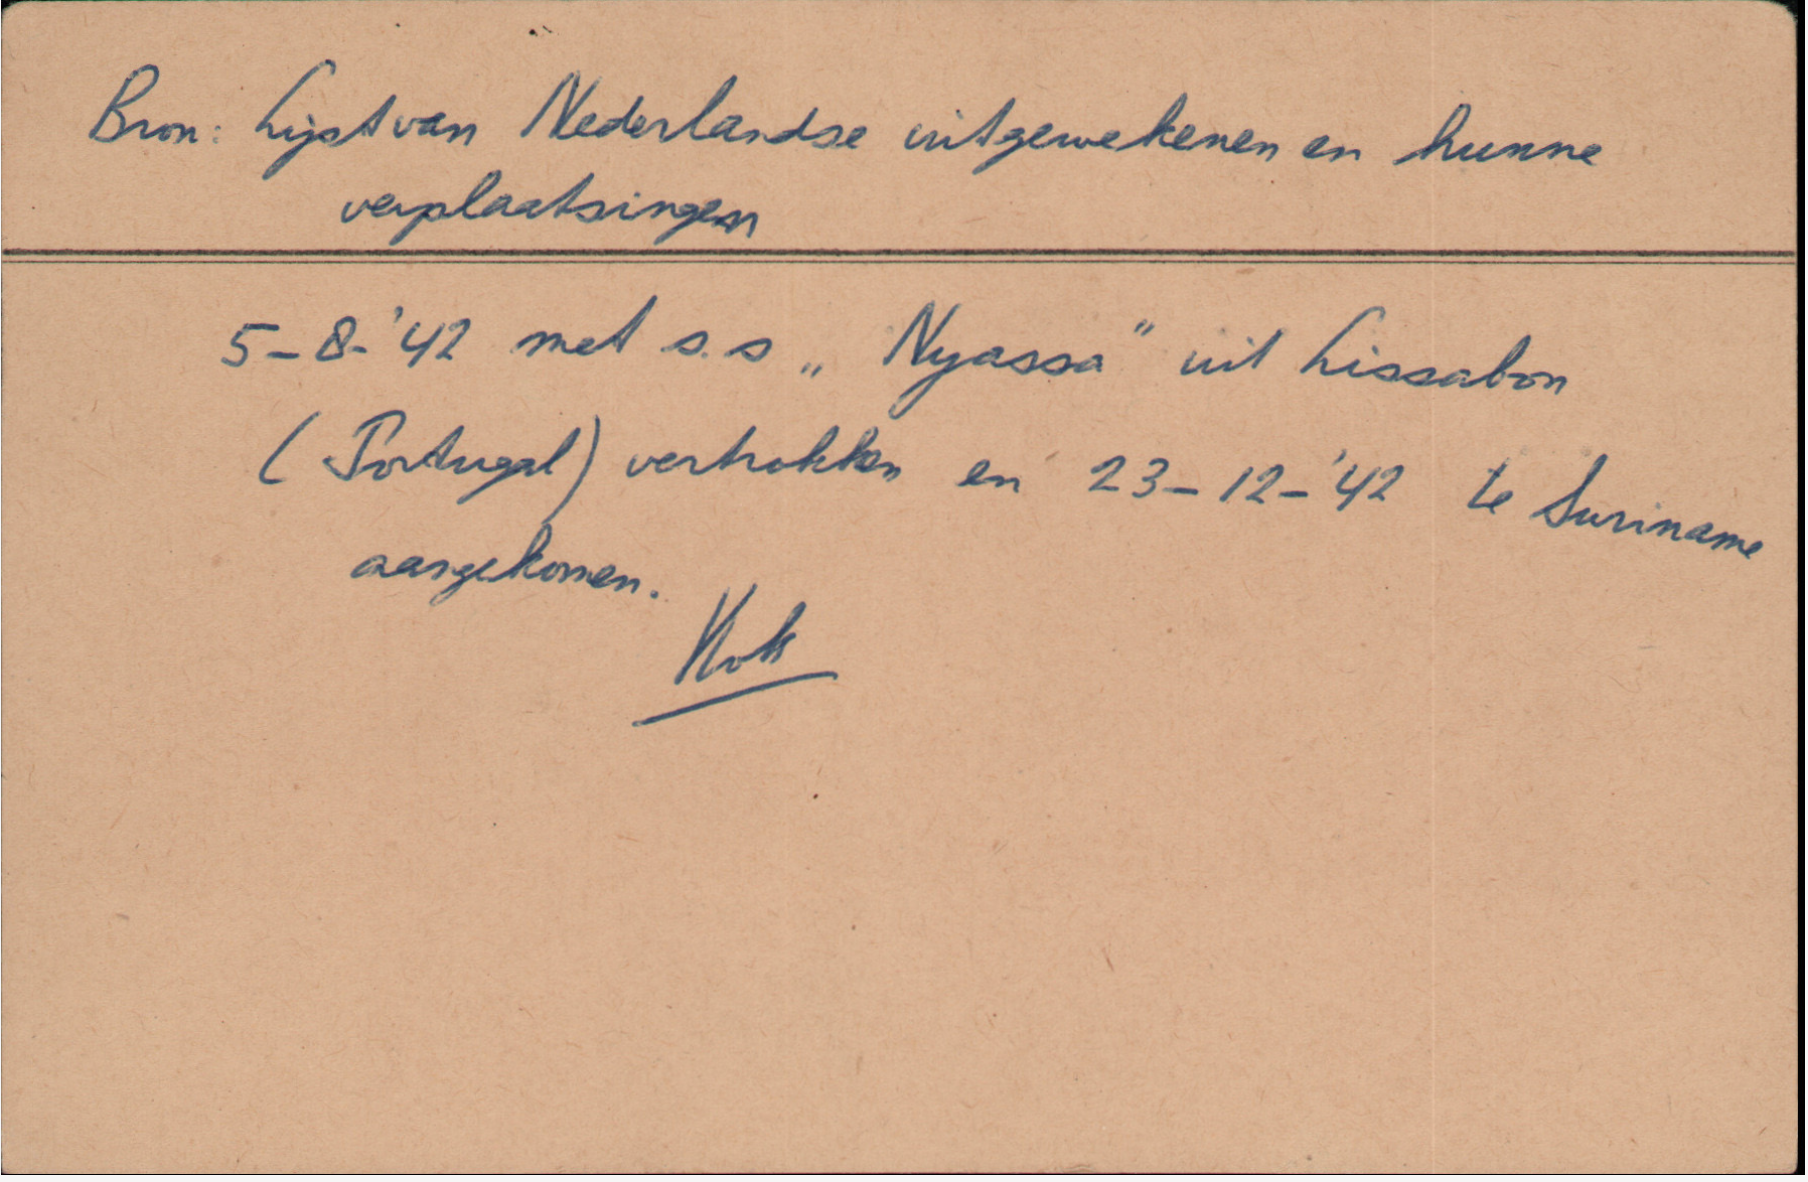 Bron: Lijst van Nederlandse uitgewekenen en hunne
verplaatsingen
5-8-'42 met s.s „Nyassa" uit Lissabon
(Portugal) vertrokken en 23-12-'42 te Suriname
aangekomen.
Kok